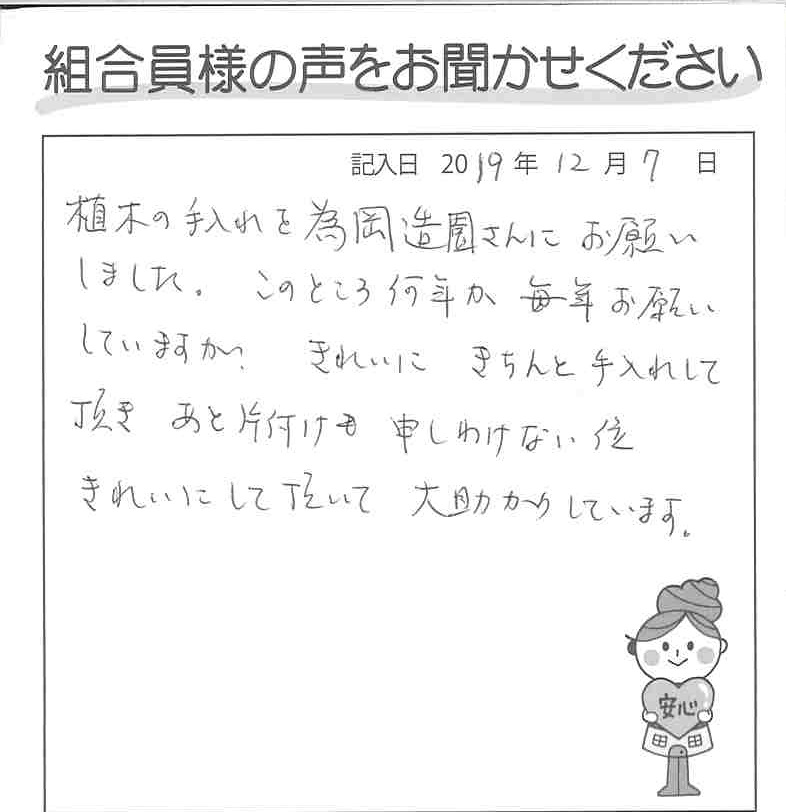 組合員様の声をお聞かせください
記入日 2019年 12月 7 日
植木の手入れを為岡造園さんに お願い
しました。 このところ何年か 毎年お願い
していますが、 きれいに きちんと手入れして
頂き あと片付けも 申しわけない位
きれいにして頂いて 大助かりしています。
安心